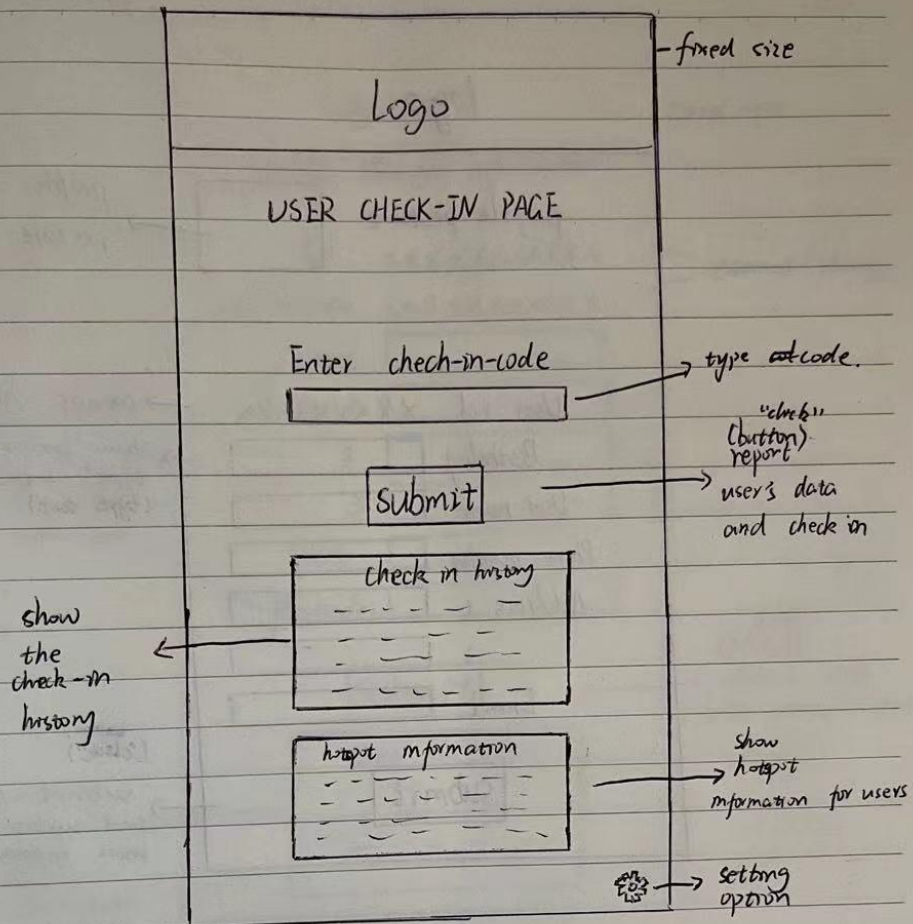 fixed size
Logo
USER CHECK-IN PAGE
Enter chech-in-code
type code.
"check"
(button)
report
user's data
and check in
submit
check in history
show
the
check-in
history
hotspot information
show
hotspot
information for users
setting
option